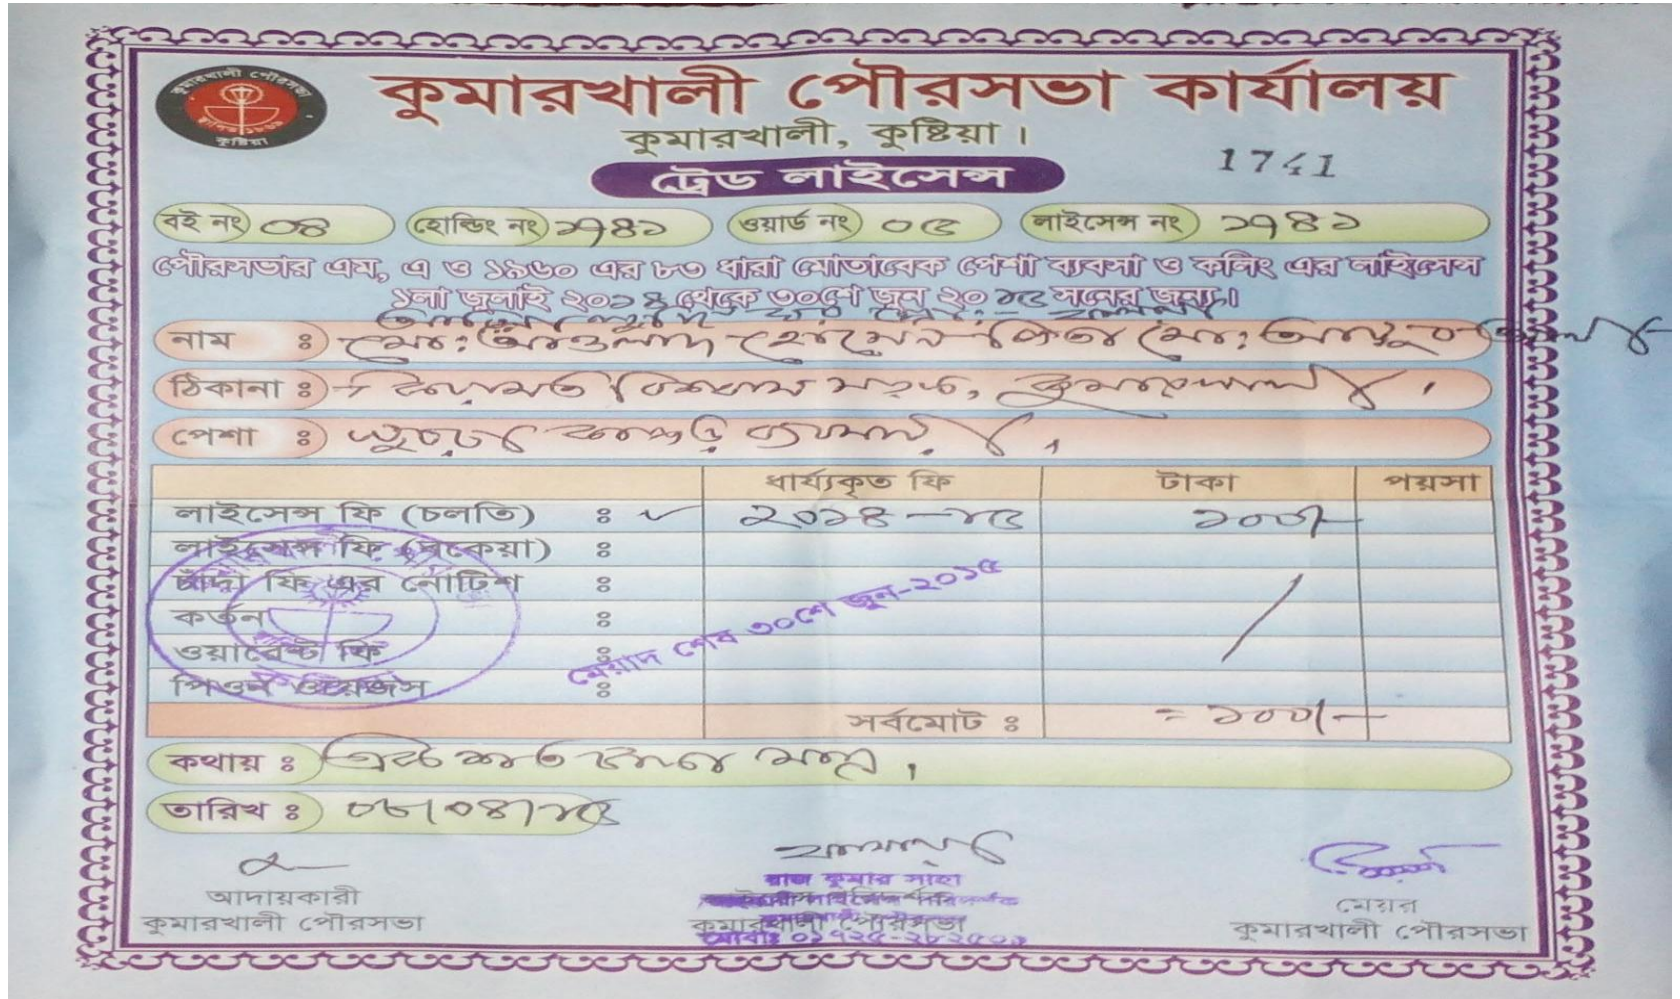 কুমারখালী পৌরসভা
স্থাপিত ১৮৬৯
কুষ্টিয়া
কুমারখালী পৌরসভা কার্যালয়
কুমারখালী, কুষ্টিয়া ।
1741
ট্রেড লাইসেন্স
বই নং ০৪ হোল্ডিং নং ১৭৪১ ওয়ার্ড নং ০৫ লাইসেন্স নং ১৭৪১
পৌরসভার এম, এ ও ১৯৬০ এর ৮৩ ধারা মোতাবেক পেশা ব্যবসা ও কলিং এর লাইসেন্স
১লা জুলাই ২০১৪ থেকে ৩০শে জুন ২০১৫ সনের জন্য।
নাম ঃ মোঃ আওলাদ হোসেন পিতা মোঃ
ঠিকানা ঃ বিশ্বাস সড়ক, কুমারখালী ।
পেশা ঃ খুচরা কাপড় ব্যবসায়ী ।
ধার্য্যকৃত ফি টাকা পয়সা
লাইসেন্স ফি (চলতি) ঃ ২০১৪-১৫ ১০০/-
লাইসেন্স ফি (বকেয়া) ঃ
চাঁদা ফি এর নোটিশ ঃ
কর্তন ঃ
ওয়ারেন্ট ফি ঃ
পিওন ওয়েজস ঃ
মেয়াদ শেষ ৩০শে জুন-২০১৫
সর্বমোট ঃ = ১০০/-
কথায় ঃ এক শত টাকা মাত্র ।
তারিখ ঃ ০৮/০৪/১৫
আদায়কারী
কুমারখালী পৌরসভা
রাজ কুমার সাহা
কুমারখালী পৌরসভা
মেয়র
কুমারখালী পৌরসভা